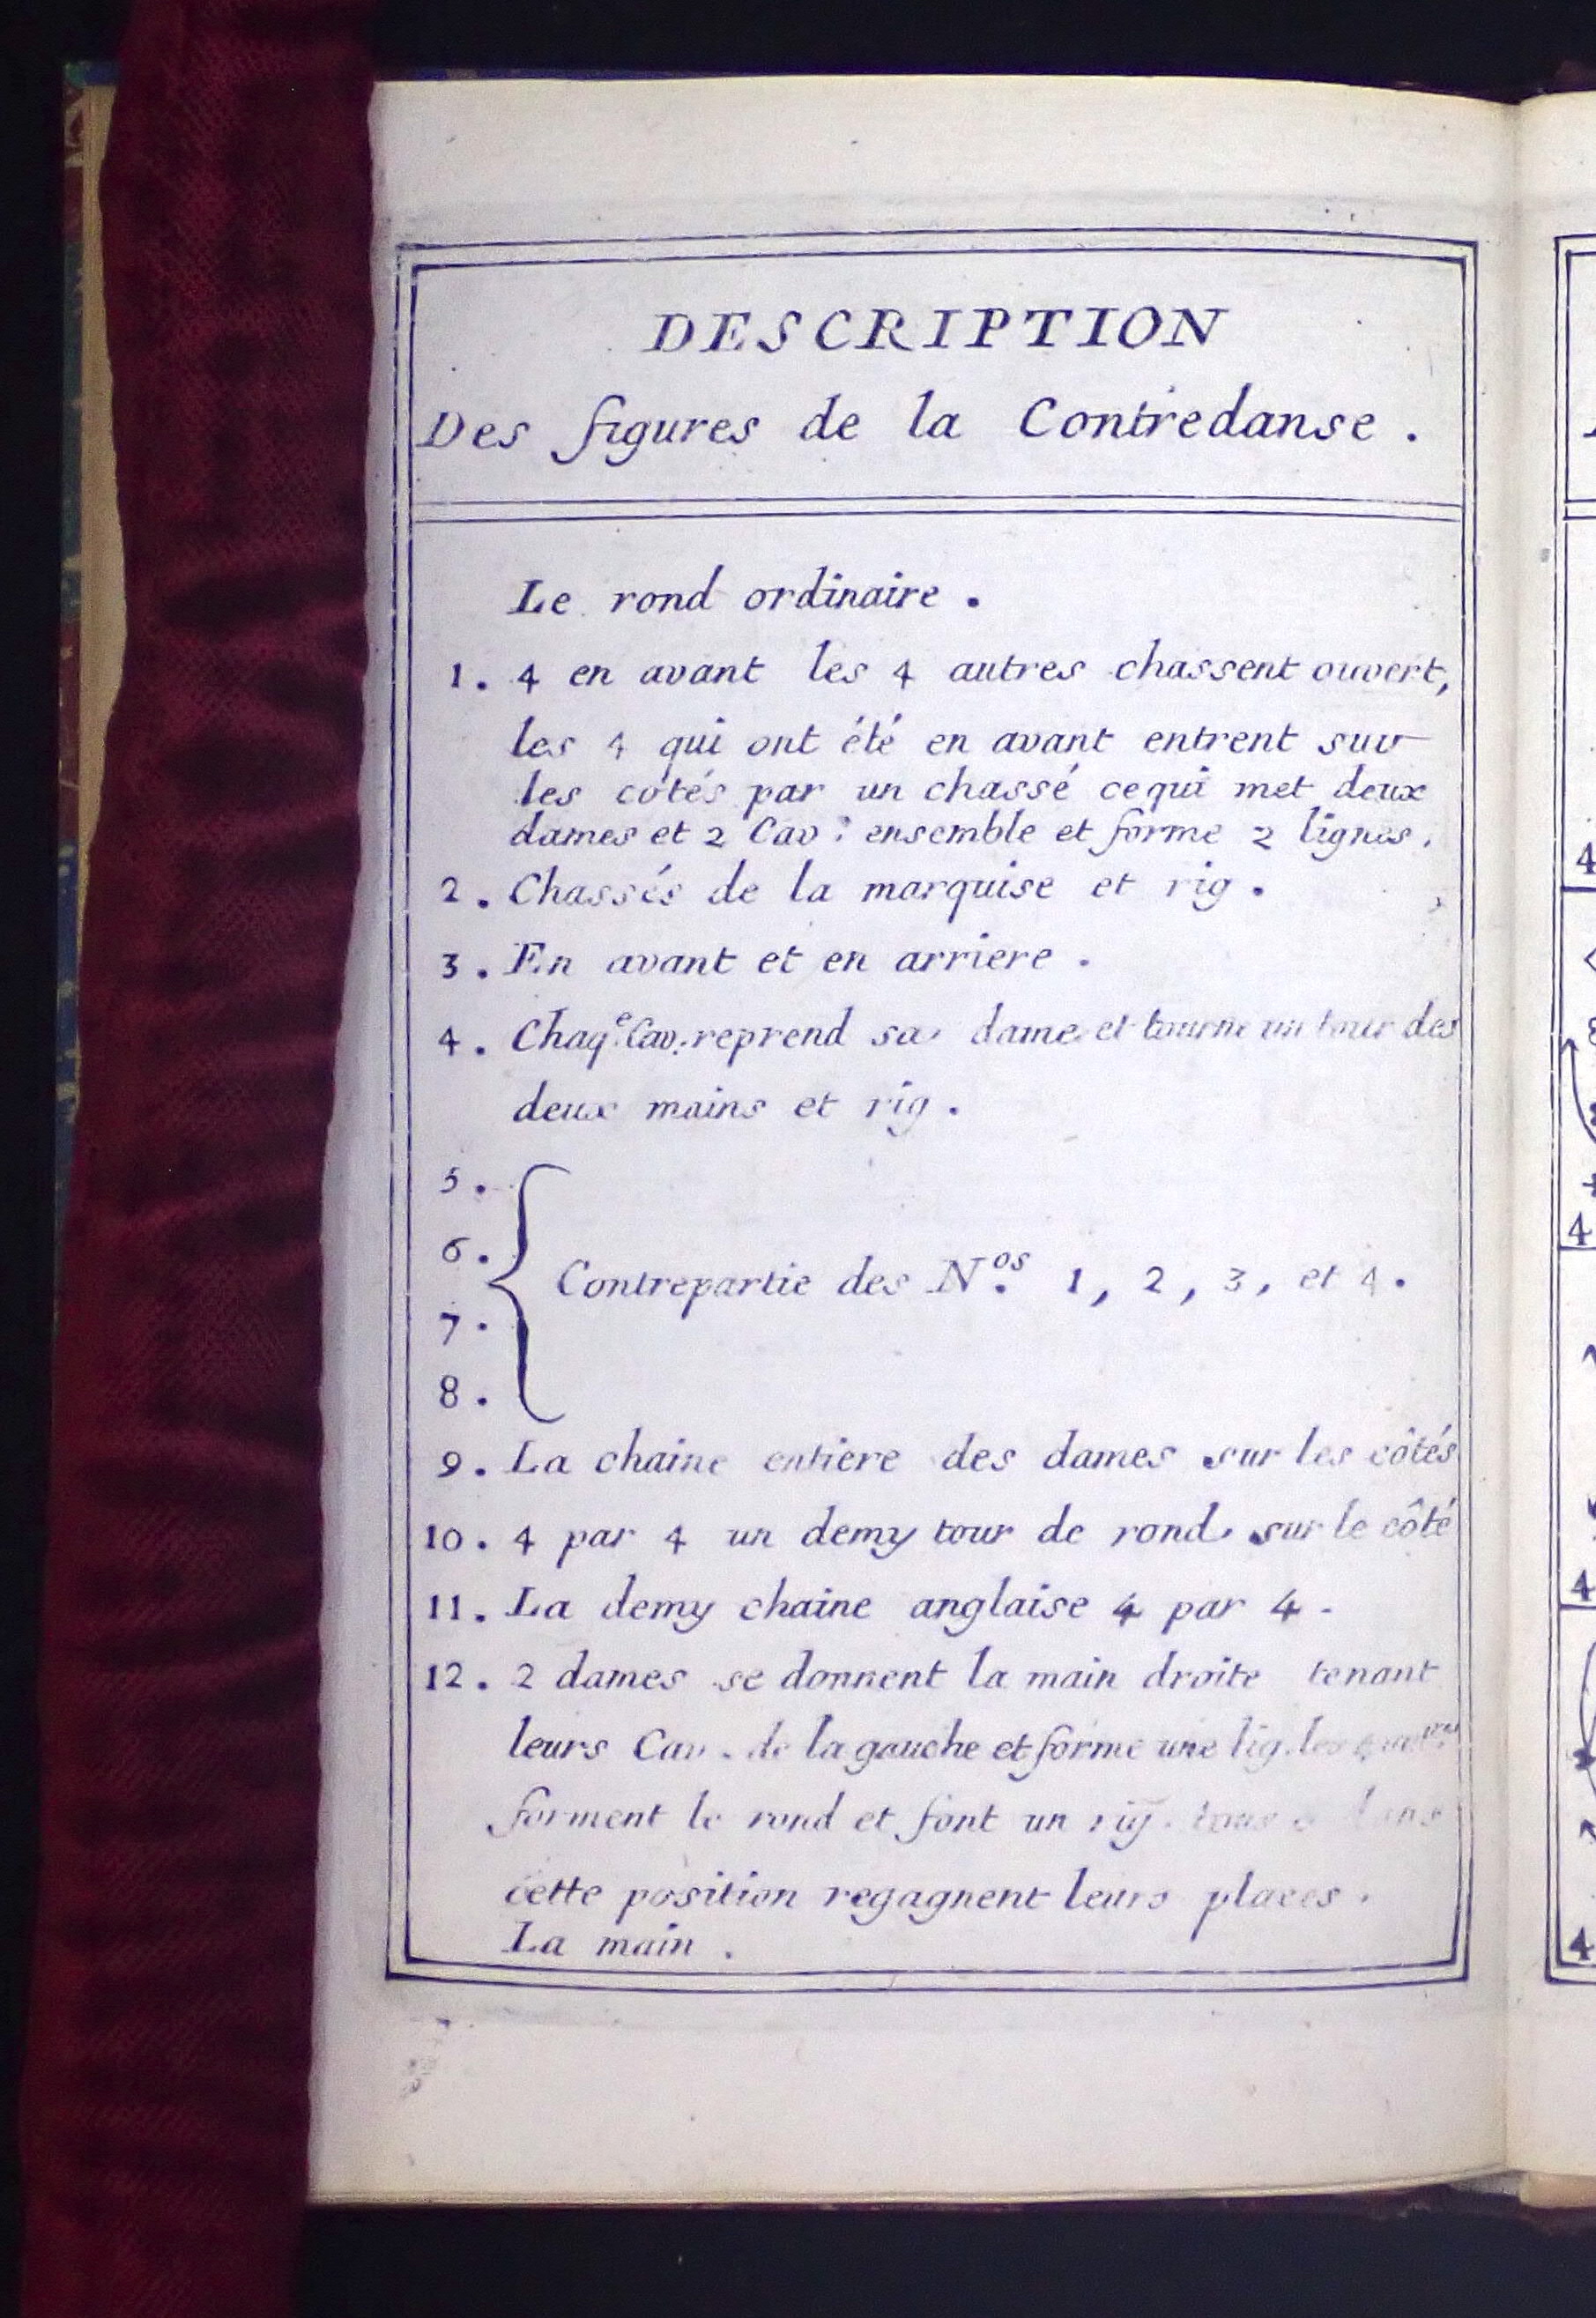 DESCRIPTION
Des figures de la Contredanse .
Le rond ordinaire .
1 . 4 en avant les 4 autres chassent ouvert,
les 4 qui ont été en avant entrent sur
les cótés par un chassé cequi met deux
dames et 2 Cav : ensemble et forme 2 lignes .
2 . Chassés de la marquise et rig .
3 . En avant et en arriere .
4 . Chaq.e Cav. reprend sa dame et tourne un tour des
deux mains et rig .
5 .
6 .
Contrepartie des N.os 1 , 2 , 3 , et 4 .
7 .
8 .
9 . La chaine entiere des dames sur les côtés
10 . 4 par 4 un demy tour de rond sur le côté
11 . La demy chaine anglaise 4 par 4 .
12 . 2 dames se donnent la main droite tenant
leurs Cav . de la gauche et forme une lig. les
forment le rond et font un rig .
cette position regagnent leurs places .
La main .
4
4
4
4